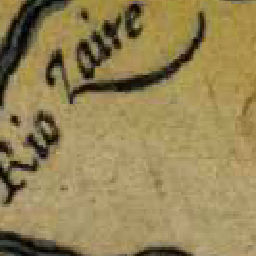 Rio Zaire